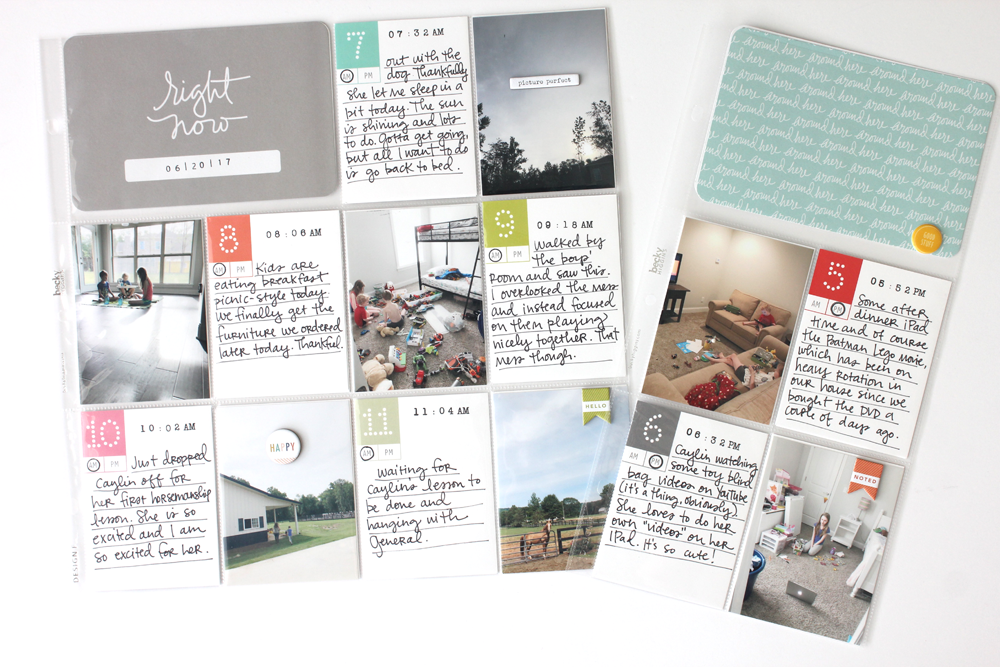 right
now
06|20|17
7
07:32AM
AM PM
out with the
dog. Thankfully
she let me sleep in a
bit today. The sun
is shining and lots
to do. Gotta get going,
but all I want to do
is go back to bed.
picture perfect
around here around here around here
8
08:06AM
AM PM
Kids are
eating breakfast
picnic-style today.
we finally get the
furniture we ordered
later today. Thankful.
9
09:18AM
AM PM
Walked by
the boys'
room and saw this.
I overlooked the mess
and instead focused
on them playing
nicely together. That
mess though.
10
10:02AM
AM PM
Just dropped
Caylin off for
her first horsemanship
lesson. She is so
excited and I am
so excited for her.
HAPPY
11
11:04AM
AM PM
waiting for
Caylin's lesson to
be done and
hanging with
General.
HELLO
GOOD
STUFF
5
05:52PM
AM PM
Some after
dinner iPad
time and of course
the Batman Lego Movie,
which has been on
heavy rotation in
our house since we
bought the DVD a
couple of days ago.
6
06:32PM
AM PM
Caylin watching
some toy blind
bag videos on YouTube
(it's a thing, obviously).
She loves to do her
own "videos" on her
iPad. It's so cute!
NOTED
becky
DESIGN